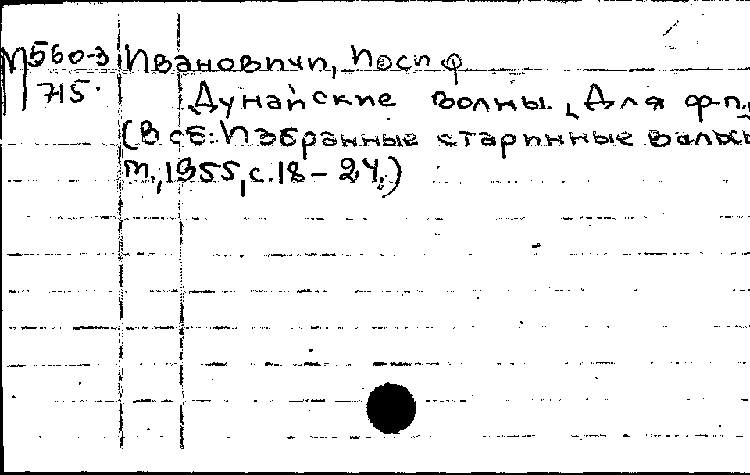 М560-3 Ивановичи, Иосиф
715. Дунайские волны. [Для ф-п.]
(В сб: Избранные старинные вальсы
М., 1955, с. 18 – 24.)